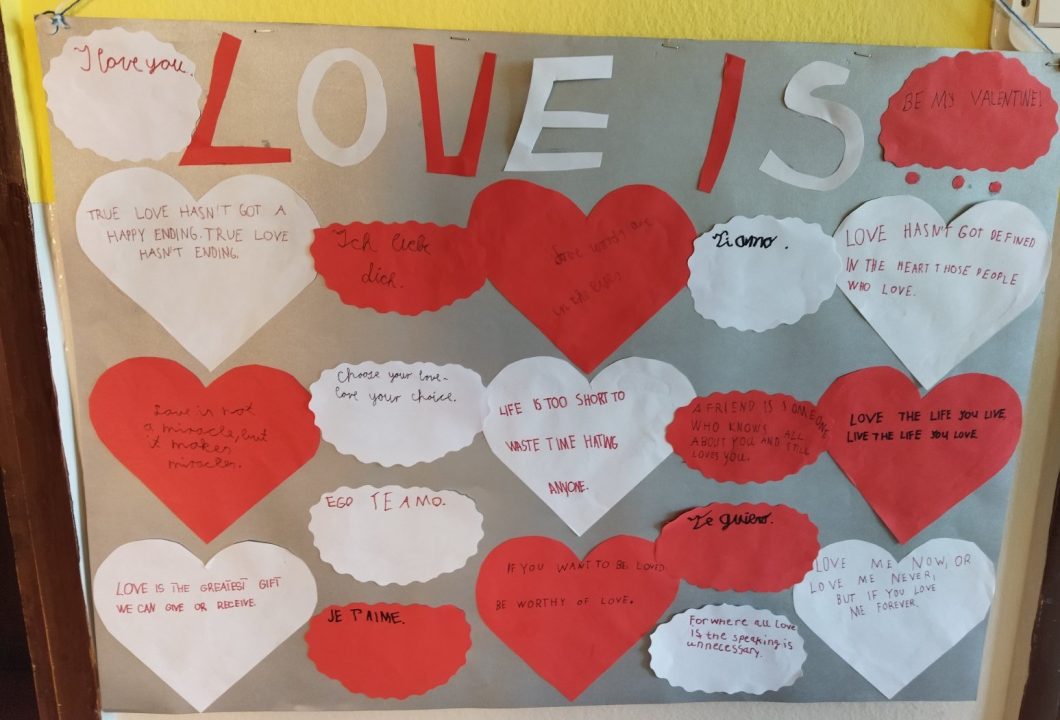 I love you.
LOVE IS
BE MY VALENTINE!
TRUE LOVE HASN'T GOT A
HAPPY ENDING. TRUE LOVE
HASN'T ENDING.
Ich liebe
dich.
in the
Ti amo.
LOVE HASN'T GOT DEFINED
IN THE HEART THOSE PEOPLE
WHO LOVE.
Love is not
a miracle, but
it makes
miracles.
Choose your love-
love your choice.
LIFE IS TOO SHORT TO
WASTE TIME HATING
ANYONE.
A FRIEND IS SOMEONE
WHO KNOWS ALL
ABOUT YOU AND STILL
LOVES YOU.
LOVE THE LIFE YOU LIVE,
LIVE THE LIFE YOU LOVE.
EGO TE AMO.
Te quiero.
LOVE IS THE GREATEST GIFT
WE CAN GIVE OR RECEIVE.
JE T'AIME.
IF YOU WANT TO BE LOVED
BE WORTHY OF LOVE.
For where all love
is the speaking is
unnecessary.
LOVE ME NOW, OR
LOVE ME NEVER,
BUT IF YOU LOVE
ME FOREVER.